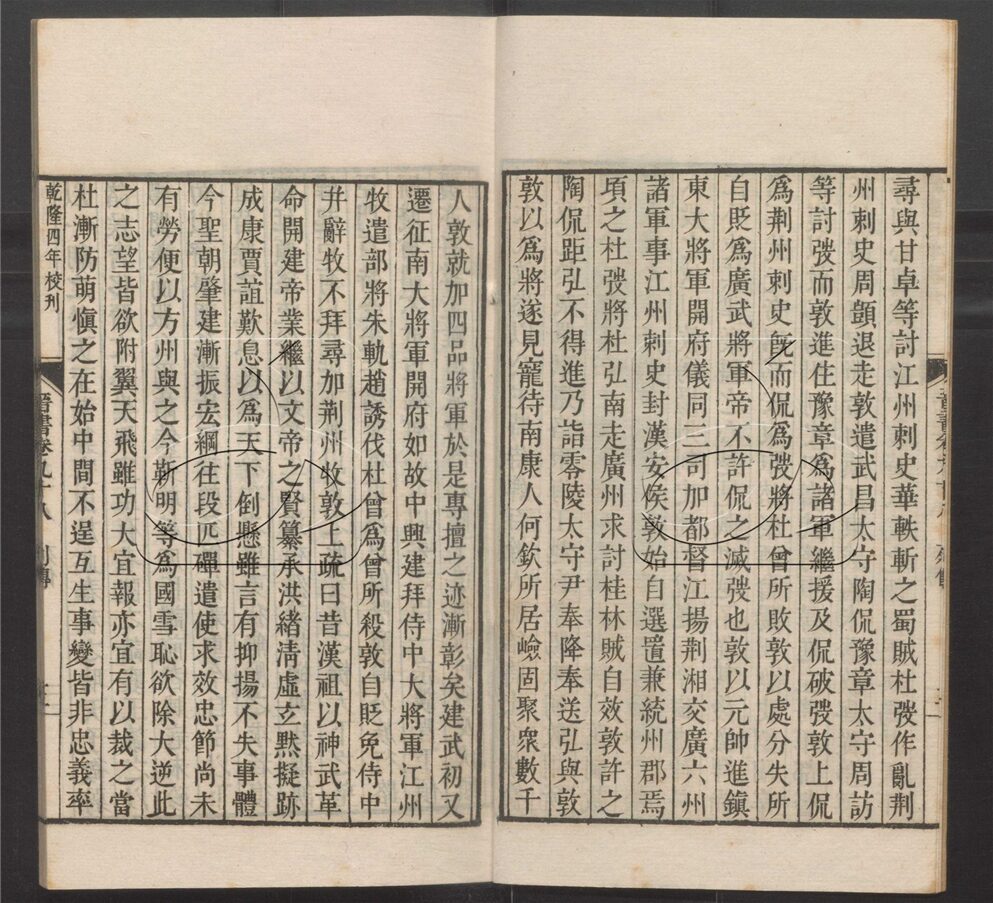 尋與甘卓等討江州刺史華軼斬之蜀賊杜弢作亂荆
州刺史周顗退走敦遣武昌太守陶侃豫章太守周訪
等討弢而敦進住豫章爲諸軍繼援及侃破弢敦上侃
爲荆州刺史旣而侃爲弢將杜曾所敗敦以處分失所
自貶爲廣武將軍帝不許侃之滅弢也敦以元帥進鎭
東大將軍開府儀同三司加都督江揚荆湘交廣六州
諸軍事江州刺史封漢安侯敦始自選置兼統州郡焉
頃之杜弢將杜弘南走廣州求討桂林賊自效敦許之
陶侃距弘不得進乃詣零陵太守尹奉降奉送弘與敦
敦以爲將遂見寵待南康人何欽所居嶮固聚衆數千
人敦就加四品將軍於是專擅之迹漸彰矣建武初又
遷征南大將軍開府如故中興建拜侍中大將軍江州
牧遣部將朱軌趙誘伐杜曾爲曾所殺敦自貶免侍中
幷辭牧不拜尋加荆州牧敦上疏曰昔漢祖以神武革
命開建帝業繼以文帝之賢纂承洪緒淸虛玄默擬跡
成康賈誼歎息以爲天下倒懸雖言有抑揚不失事體
今聖朝肇建漸振宏綱往段匹磾遣使求效忠節尚未
有勞便以方州與之今靳明等爲國雪恥欲除大逆此
之志望皆欲附翼天飛雖功大宜報亦宜有以裁之當
杜漸防萌愼之在始中間不逞互生事變皆非忠義率
乾隆四年校刊
晉書卷九十八 列傳